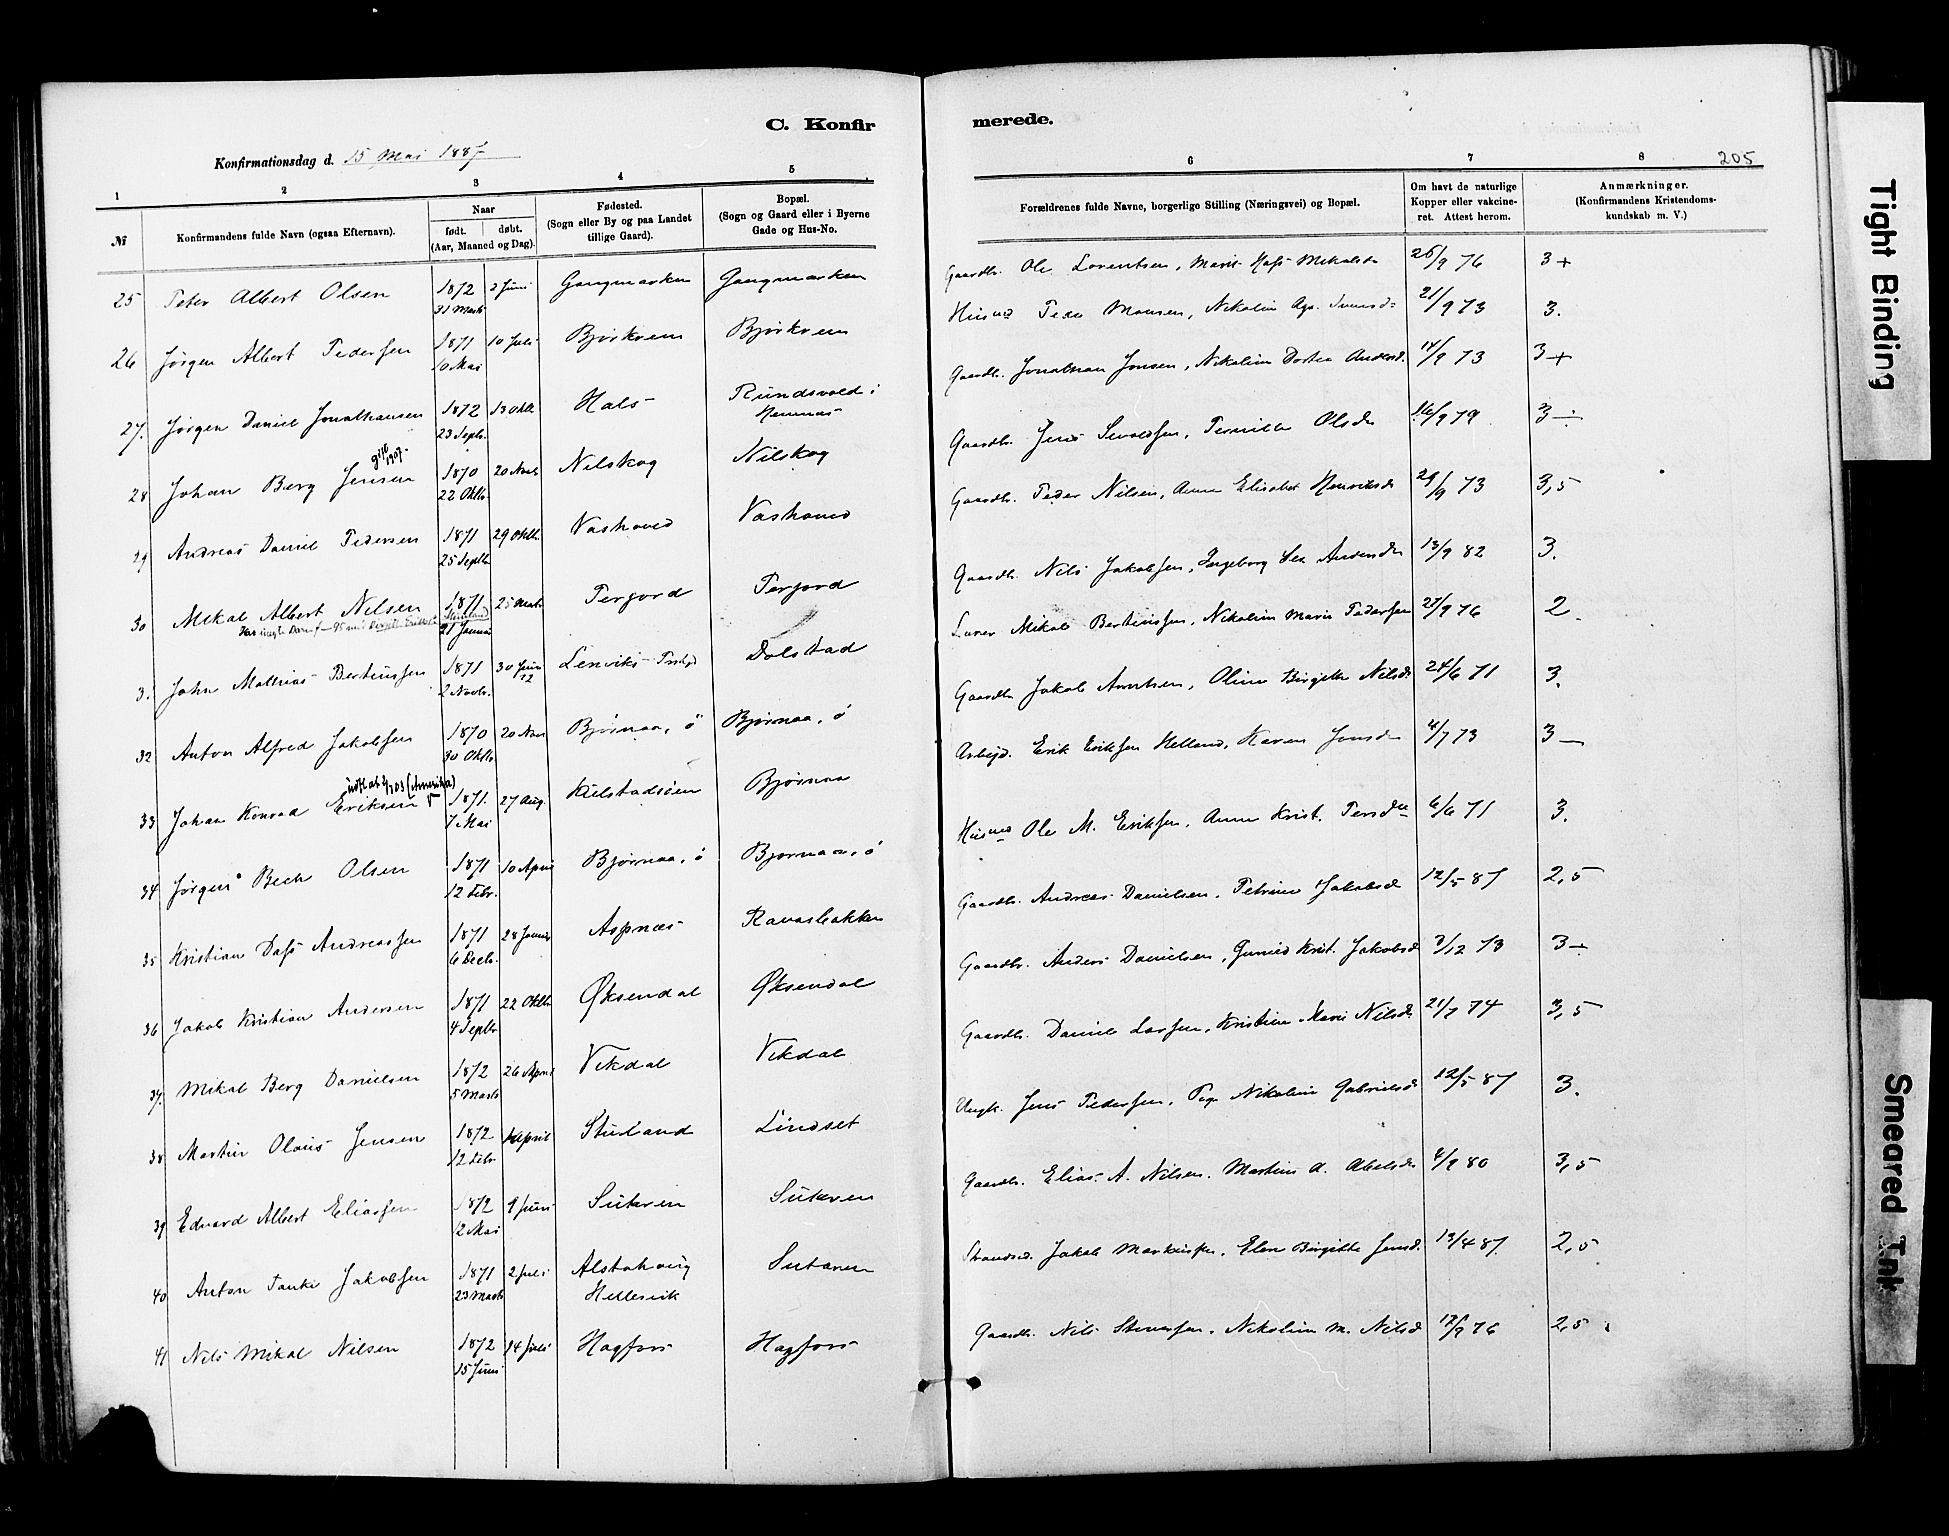 C. Konfirmerede.
Konfirmationsdag d. 15 Mai 1887
205
1 2 3 4 5 6 7 8
№
Konfirmandens fulde Navn (ogsaa Efternavn).
Naar
født. døbt.
(Aar, Maaned og Dag).
Fødested.
(Sogn eller By og paa Landet
tillige Gaard).
Bopæl.
(Sogn og Gaard eller i Byerne
Gade og Hus-No.
Forældrenes fulde Navne, borgerlige Stilling (Næringsvei) og Bopæl.
Om havt de naturlige
Kopper eller vakcine-
ret. Attest herom.
Anmærkninger.
(Konfirmandens Kristendoms-
kundskab m. V.)
25 Peter Albert Olsen 1872 31 Marts 2 Juni Gangmarken Gangmarken Gaardbr. Ole Lorentsen, Marit Mikalsd 26/9 76 3+
26 Jørgen Albert Pedersen 1871 10 Mai 10 Juli Bjørkvem Bjørkvem Husmd Peder Monsen, Nikolin 21/9 73 3.
27. Jørgen Daniel Jonathansen 1872 23 Septr. 13 Oktb Hals Rundsvold i Hemnæs Gaardbr. Jonathan Jonsen, Nikolina Dortea Andersd. 14/9 73 3+
28 Johan Berg Jensen gift 1907. 1870 22 Oktb. 20 Novb Nilskog Nilskog Gaardbr. Jens Sivaldsen, Pernille Olsdr 16/9 79 3 ÷
29 Andreas Daniel Pedersen 1871 25 Septbr 29 Oktb. Vashoved Vashoved Gaardbr. Peder Nilsen, Anne Elisabet Henriksdr 29/9 73 3,5
30 Mikal Albert Nilsen 1871 21 Januar 25 Marts Perjord Perjord Gaardbr. Nils Jakobsen, Ingeborg 13/9 82 3.
3. John Mathias Bertinussen 1871 2 Novb. 30 Juni 72 Lenviks Prstgd Dolstad Lærer Mikal Bertinussen, Nikolina Marie Pedersen 27/9 76 2.
32 Anton Alfred Jakobsen 1870 30 Oktb 20 Nov Bjørnaa, ö Bjørnaa, ö Gaardbr Jakob Arntsen, Oline Birgitte Nilsdr 24/6 71 3.
33 Johan Konrad Eriksen (Amerika) 1871. 7 Mai 27 Aug. Kulstadsøen Bjørnaa Arbejd. Erik Eriksen Helland, Karen Jonsdr 4/7 73 3 —
34 Jørgen Bech Olsen 1871 12 Febr. 10 April Bjørnaa, ö Bjørnaa, ö Husmd Ole M. Eriksen, Anne Krist. Persdtr 6/6 71 3.
35 Kristian Dass Andreassen 1871 6 Decb. 28 Januar Aspnæs Ravasbakken Gaardbr. Andreas Danielsen, Petrine Jakobsd 12/5 87 2,5
36 Jakob Kristian Andersen 1871 4 Septbr 22 Oktb Øksendal Øksendal Gaardbr. Anders Danielsen, Gunild Krist. Jakobsd 3/12 73 3+
37. Mikal Berg Danielsen 1872 5 Marts 26 April Vikdal Vikdal Gaardbr. Daniel Larsen, Kristine Marie Nilsd. 21/7 74 3,5
38 Martin Olaus Jensen 1872 12 Febr April Stuland Lindset Ungk. Jens Pedersen, Pige Nikoline Gabrielsd 12/5 87 3.
39 Edvard Albert Eliassen 1872 2 Mai 9 Juni Suteren Suteren Gaardbr. Elias A. Nilsen, Martine A. Abelsdr 4/9 80 3,5
40 Anton Tanke Jakobsen 1871 23 Marts 2 Juli Alstahoug Hellesvik Suteren Strandsd. Jakob Markussen, Elen Birgitte Jensd. 13/4 87. 2,5
41 Nils Mikal Nilsen 1872 15 Juni 14 Juli Hagfors Hagfors Gaardbr. Nils Stenersen, Nikoline M. Nilsd 12/9 76 2,5
Tight Binding
Smeared Ink